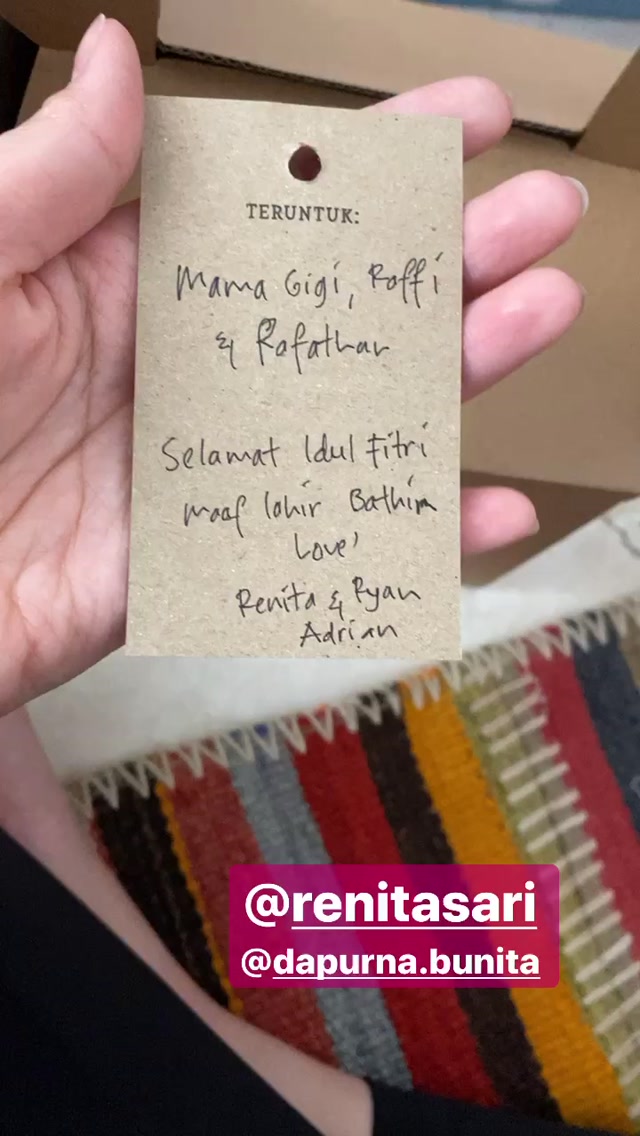 TERUNTUK:
Mama Gigi, Raffi
& Rafathar
Selamat Idul Fitri
maaf lahir Bathin
Love'
Renita & Ryan
Adrian
@renitasari
@dapurna.bunita